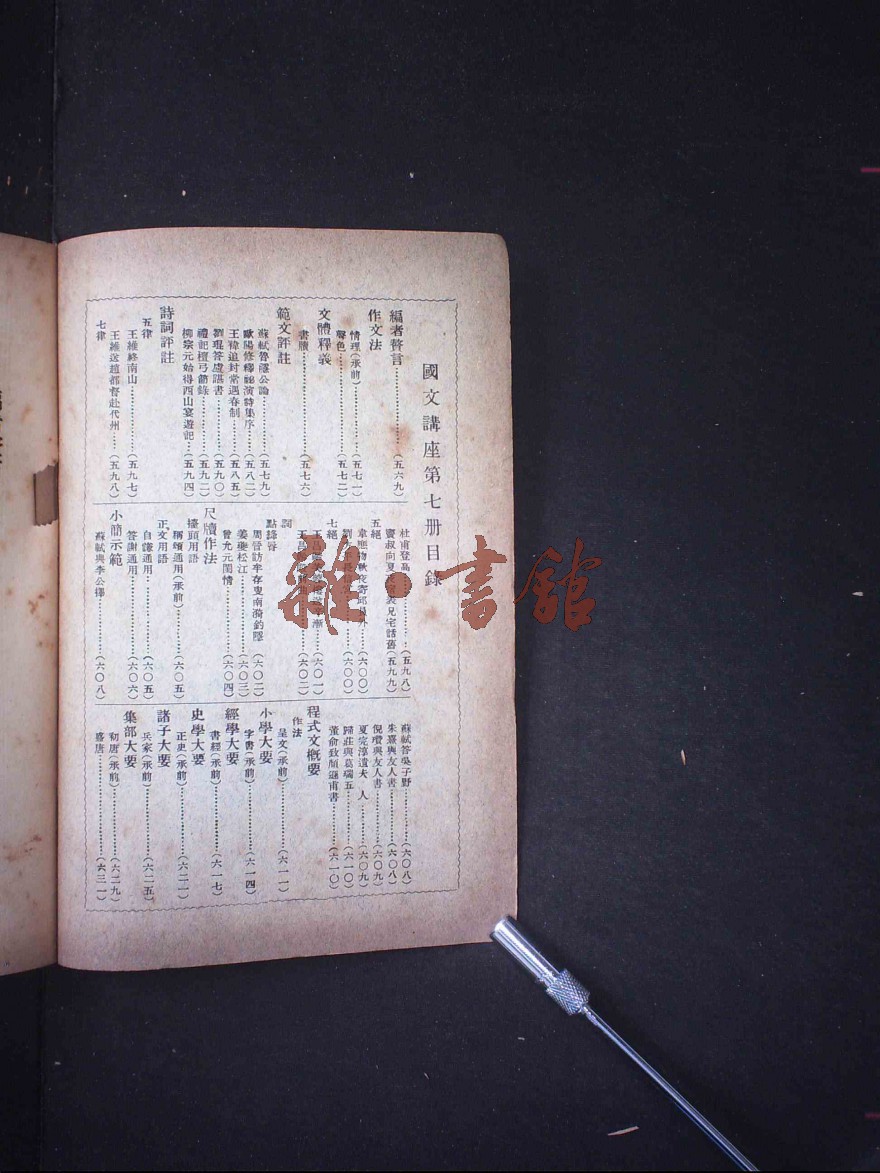 國文講座第七册目錄
編者瞀言……(五六九)
作文法
情理(承前)……(五七一)
聲色……(五七二)
文體釋義
書牘……(五七六)
範文評註
蘇軾魯隱公論……(五七九)
歐陽修釋祕演詩集序…(五八二)
王禕追封常遇春制…(五八五)
劉琨答盧諶書……(五九〇)
禮記檀弓節錄……(五九二)
柳宗元始得西山宴遊記…(五九四)
詩詞評註
五律
王維終南山……(五九七)
王維送趙都督赴代州…(五九八)
七律
杜甫登高……(五九八)
竇叔向夏夜宿表兄宅話舊(五九九)
五絕
韋應物秋夜寄邱員外…(六〇〇)
……(六〇〇)
七絕
……(六〇一)
……(六〇二)
詞
點絳脣
周晉訪牟存叟南漪釣隱(六〇二)
姜夔松江……(六〇三)
曾允元閨情……(六〇四)
尺牘作法
擡頭用語
稱頌通用(承前)…(六〇五)
正文用語
自謙通用……(六〇五)
答謝通用……(六〇六)
小簡示範
蘇軾與李公擇……(六〇八)
蘇軾答吳子野……(六〇八)
朱熹與友人書……(六〇八)
倪瓚與友人書……(六〇九)
夏完淳遺夫人……(六〇九)
歸莊與葛瑞五……(六一〇)
董俞致顏遜甫書……(六一〇)
程式文概要
作法
呈文(承前)……(六一一)
小學大要
字書(承前)……(六一四)
經學大要
書經(承前)……(六一七)
史學大要
正史(承前)……(六二一)
諸子大要
兵家(承前)……(六二五)
集部大要
初唐(承前)……(六二九)
盛唐……(六三一)
雜·書館